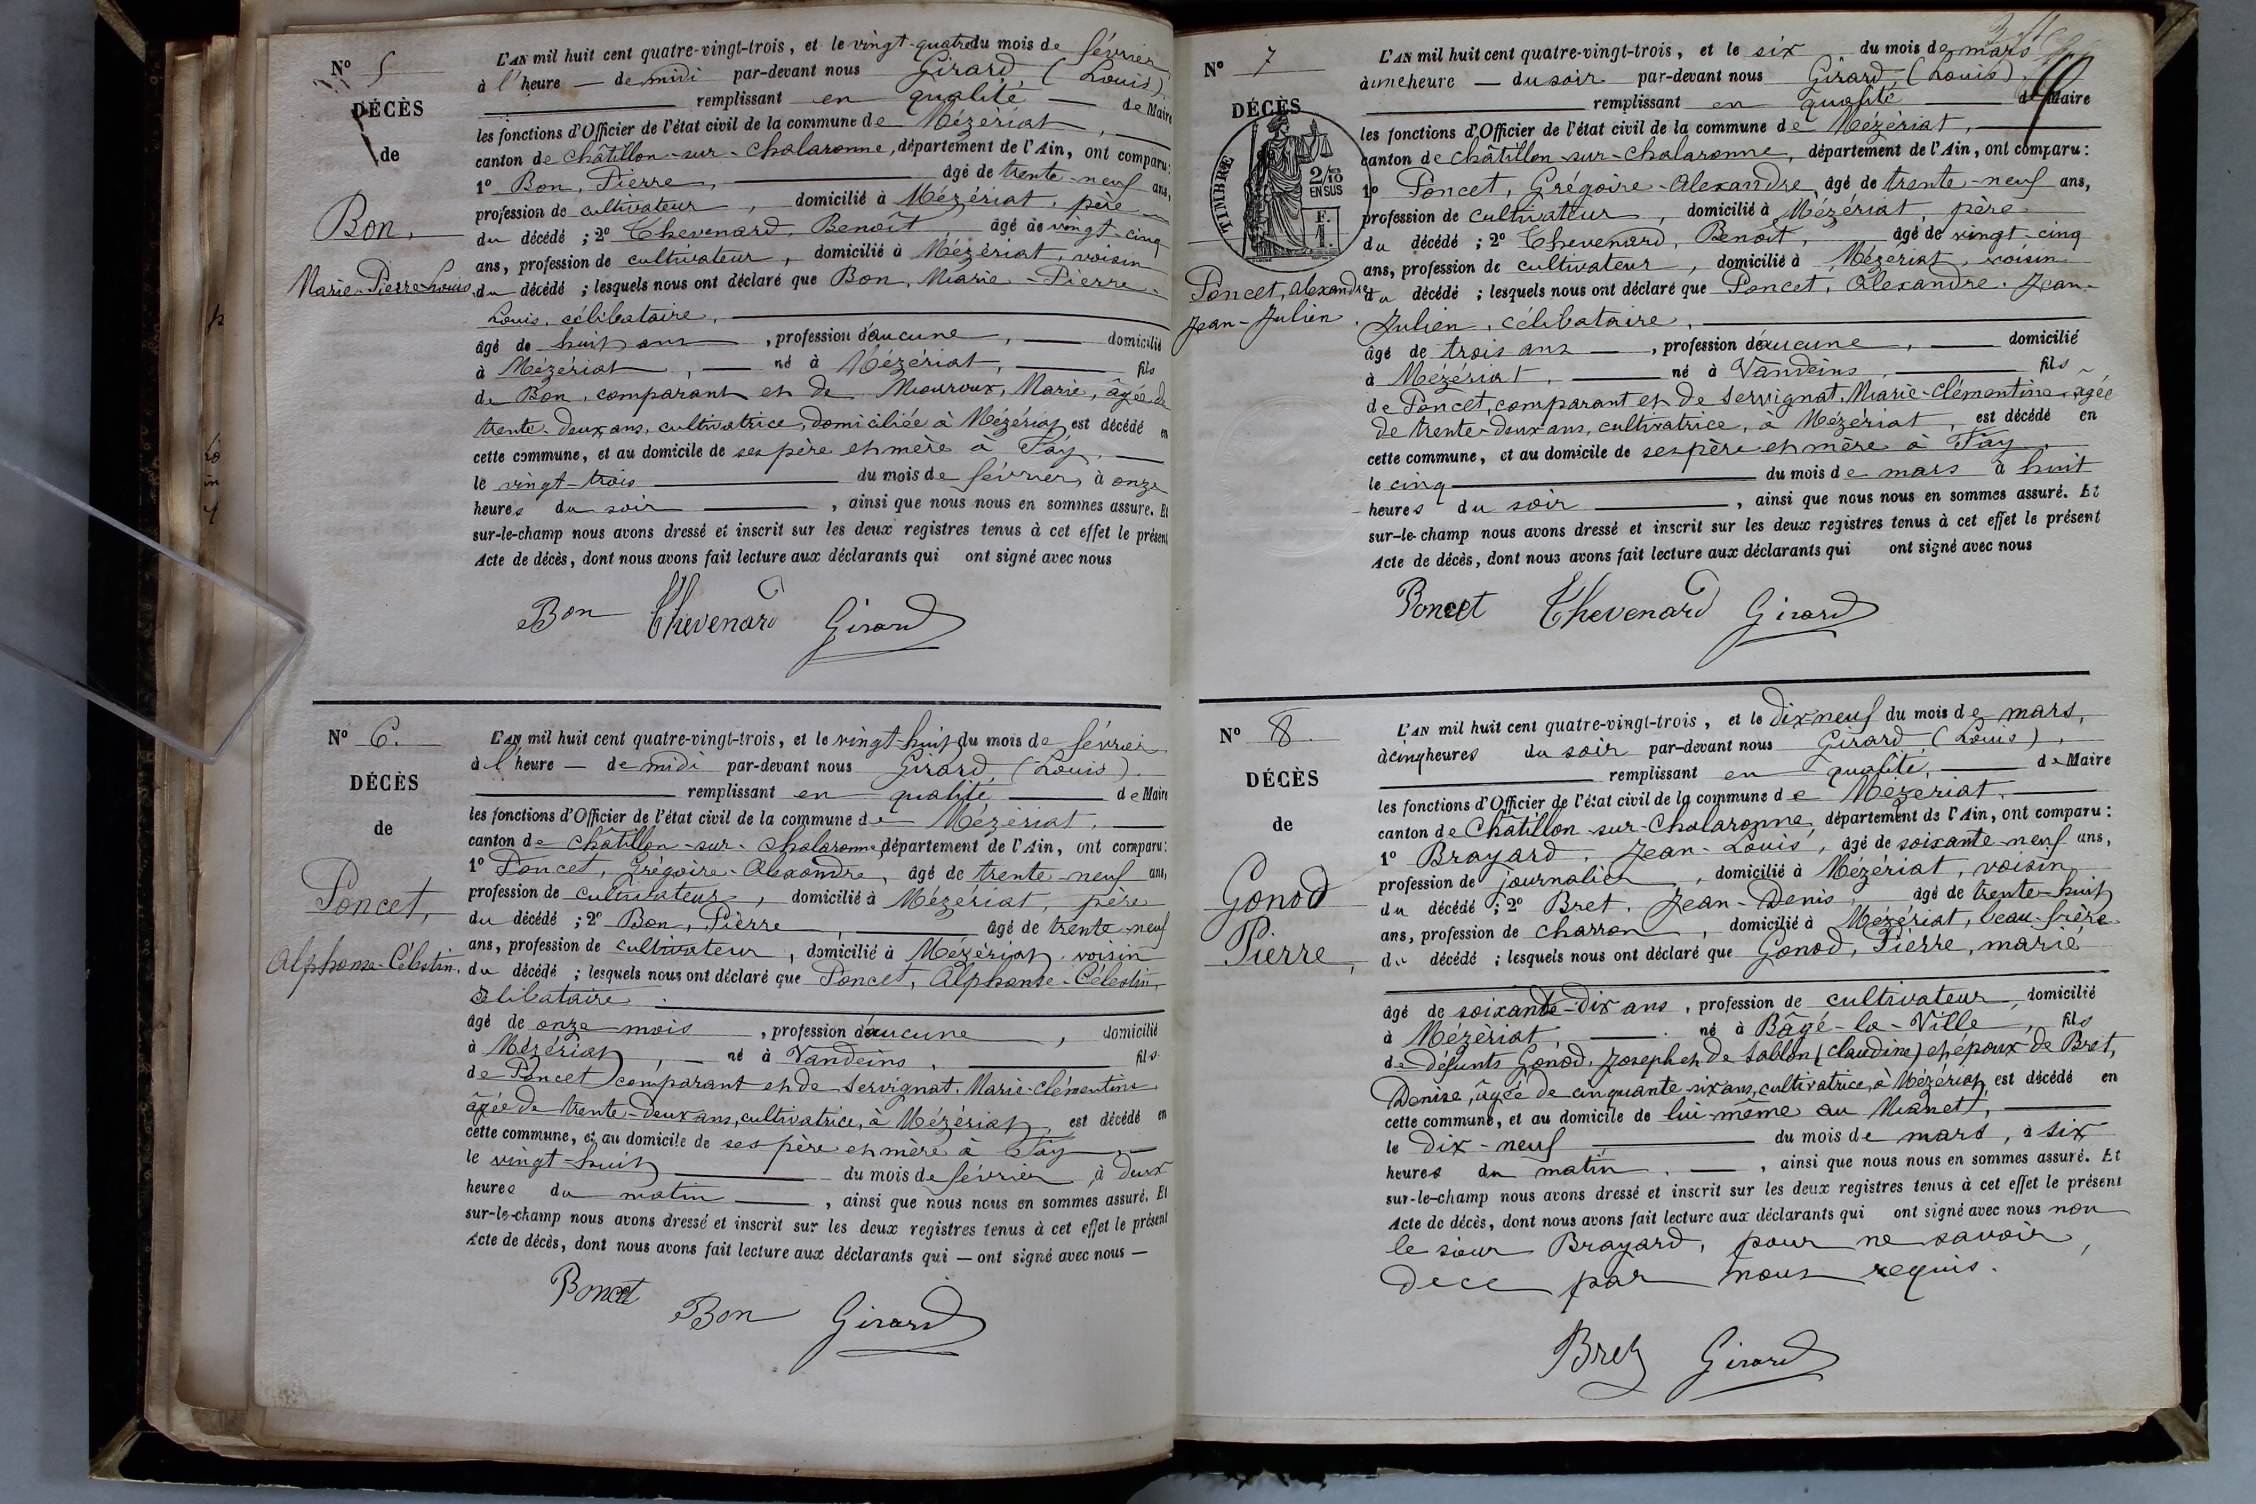 N° 5
DÉCÈS
de
Bon,
Marie-Pierre-Louis
L'AN mil huit cent quatre-vingt-trois, et le vingt-quatre du mois de février
à l'heure — de midi par-devant nous Girard, (Louis).
remplissant en qualité — de Maire
les fonctions d'Officier de l'état civil de la commune de Mézériat,
canton de Châtillon-sur-Chalaronne, département de l'Ain, ont comparu:
1° Bon, Pierre, âgé de trente-neuf ans,
profession de cultivateur, domicilié à Mézériat, père
du décédé ; 2° Chevenard, Benoît âgé de vingt-cinq
ans, profession de cultivateur, domicilié à Mézériat, voisin
du décédé ; lesquels nous ont déclaré que Bon, Marie-Pierre-
Louis, célibataire,
âgé de huit ans, profession d'aucune, domicilié
à Mézériat, né à Mézériat, fils
de Bon, comparant et de Mouroux, Marie, âgée de
trente-deux ans, cultivatrice, domiciliée à Mézériat, est décédé en
cette commune, et au domicile de ses père et mère à Fay,
le vingt-trois du mois de février, à onze
heures du soir, ainsi que nous nous en sommes assuré. Et
sur-le-champ nous avons dressé et inscrit sur les deux registres tenus à cet effet le présent
Acte de décès, dont nous avons fait lecture aux déclarants qui ont signé avec nous
Bon Chevenard Girard
N° 6.
DÉCÈS
de
Poncet,
Alphonse-Célestin.
L'AN mil huit cent quatre-vingt-trois, et le vingt-huit du mois de février
à l'heure — de midi par-devant nous Girard, (Louis).
remplissant en qualité — de Maire
les fonctions d'Officier de l'état civil de la commune de Mézériat,
canton de Châtillon-sur-Chalaronne, département de l'Ain, ont comparu:
1° Poncet, Grégoire-Alexandre, âgé de trente-neuf ans,
profession de cultivateur, domicilié à Mézériat, père
du décédé ; 2° Bon, Pierre, âgé de trente-neuf
ans, profession de cultivateur, domicilié à Mézériat, voisin
du décédé ; lesquels nous ont déclaré que Poncet, Alphonse-Célestin,
célibataire
âgé de onze mois, profession d'aucune, domicilié
à Mézériat, né à Vandeins, fils
de Poncet comparant et de Servignat, Marie-Clémentine
âgée de trente-deux ans, cultivatrice, à Mézériat, est décédé en
cette commune, et au domicile de ses père et mère à Fay
le vingt-huit du mois de février, à deux
heures du matin, ainsi que nous nous en sommes assuré. Et
sur-le-champ nous avons dressé et inscrit sur les deux registres tenus à cet effet le présent
Acte de décès, dont nous avons fait lecture aux déclarants qui — ont signé avec nous —
Poncet Bon Girard
N° 7
DÉCÈS
TIMBRE
2/10
EN SUS
F.
1.
Poncet, Alexandre
Jean-Julien.
L'AN mil huit cent quatre-vingt-trois, et le six du mois de mars
à une heure — du soir par-devant nous Girard, (Louis).
remplissant en qualité — de Maire
les fonctions d'Officier de l'état civil de la commune de Mézériat,
canton de Châtillon-sur-Chalaronne, département de l'Ain, ont comparu:
1° Poncet, Grégoire-Alexandre, âgé de trente-neuf ans,
profession de cultivateur, domicilié à Mézériat, père
du décédé ; 2° Chevenard, Benoît, âgé de vingt-cinq
ans, profession de cultivateur, domicilié à Mézériat, voisin
du décédé ; lesquels nous ont déclaré que Poncet, Alexandre-Jean-
Julien, célibataire,
âgé de trois ans, profession d'aucune, domicilié
à Mézériat, né à Vandeins, fils
de Poncet, comparant et de Servignat, Marie-Clémentine, âgée
de trente-deux ans, cultivatrice, à Mézériat, est décédé en
cette commune, et au domicile de ses père et mère à Fay,
le cinq du mois de mars à huit
heures du soir, ainsi que nous nous en sommes assuré. Et
sur-le-champ nous avons dressé et inscrit sur les deux registres tenus à cet effet le présent
Acte de décès, dont nous avons fait lecture aux déclarants qui ont signé avec nous
Poncet Chevenard Girard
N° 8.
DÉCÈS
de
Gonod
Pierre,
L'AN mil huit cent quatre-vingt-trois, et le dix neuf du mois de mars,
à cinq heures du soir par-devant nous Girard, (Louis),
remplissant en qualité, de Maire
les fonctions d'Officier de l'état civil de la commune de Mézériat.
canton de Châtillon-sur-Chalaronne, département de l'Ain, ont comparu:
1° Brayard, Jean-Louis, âgé de soixante-neuf ans,
profession de journalier, domicilié à Mézériat, voisin
du décédé ; 2° Bret, Jean-Denis, âgé de trente-huit
ans, profession de charron, domicilié à Mézériat, beau-frère
du décédé ; lesquels nous ont déclaré que Gonod, Pierre, marié
âgé de soixante-dix ans, profession de cultivateur, domicilié
à Mézériat, né à Bâgé-la-Ville, fils
de défunts Gonod, Joseph et de Sablon (Claudine) et époux de Bret,
Denise, âgée de cinquante-six ans, cultivatrice, à Mézériat, est décédé en
cette commune, et au domicile de lui-même au Mianet,
le dix-neuf du mois de mars, à six
heures du matin, ainsi que nous nous en sommes assuré. Et
sur-le-champ nous avons dressé et inscrit sur les deux registres tenus à cet effet le présent
Acte de décès, dont nous avons fait lecture aux déclarants qui ont signé avec nous non
le sieur Brayard, pour ne savoir,
de ce par nous requis.
Bret Girard